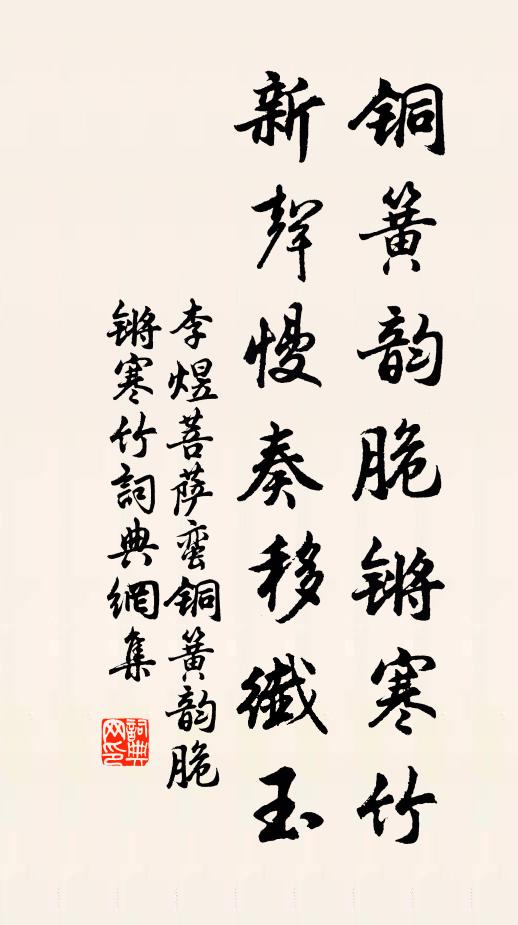 铜簧韵脆锵寒竹
新聲慢奏移纖玉
李煜菩萨蛮铜簧韵脆
锵寒竹詞典網集
詞典
网印